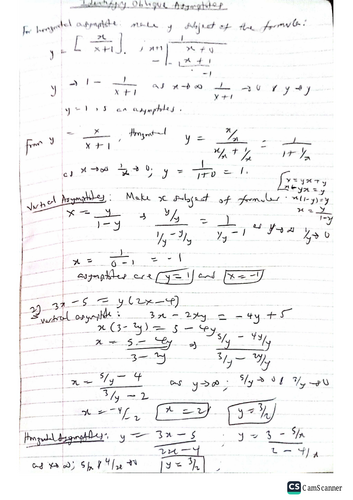 Identify Oblique Asymptotes
For horizontal asymptote, make y subject of the formula:
y = [x / x+1], x+1 | 1 / x+0
- x+1 / -1
y → 1 - 1/(x+1) as x→∞ 1/(x+1) → 0 & y→y
y = 1 is an asymptotes.
from y = x/(x+1), Horizontal y = (x/x)/(x/x + 1/x) = 1/(1+1/x)
as x→∞ 1/x → 0, y = 1/(1+0) = 1.
x = yx + y
x - yx = y
x(1-y) = y
x = y/(1-y)
Vertical Asymptotes: Make x subject of formular
x = y/(1-y) ⇒ (y/y)/(1/y - y/y) = 1/(1/y - 1) as y→∞ 1/y → 0
x = 1/(0-1) = -1
asymptotes are y=1 and x=-1
2) 3x-5 = y(2x-4)
vertical asymptote: 3x - 2xy = -4y + 5
x(3-2y) = 5-4y
x = (5-4y)/(3-2y) ⇒ (5/y - 4y/y)/(3/y - 2y/y)
x = (5/y - 4)/(3/y - 2) as y→∞; 5/y → 0 & 3/y → 0
x = -4/-2 x = 2 y = 3/2
Horizontal asymptotes: y = (3x-5)/(2x-4); y = (3 - 5/x)/(2 - 4/x)
as x→∞; 5/x & 4/x → 0 y = 3/2
CS CamScanner